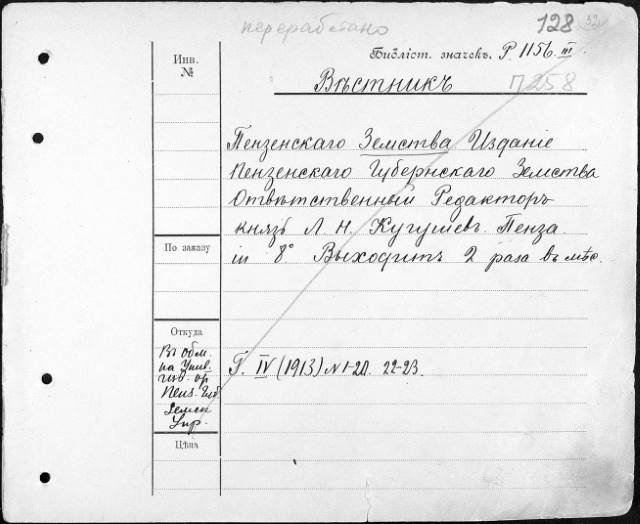 переработано
128
Инв.
№
Библіот. значекъ. Р. 1156. III
Вѣстникъ П258
Пензенскаго Земства Изданіе
Пензенскаго Губернскаго Земства
Отвѣтственный Редакторъ
князь Л. Н. Кугушев. Пенза.
in 8° Выходитъ 2 раза въ мѣс.
По заказу
Откуда
Въ обм.
на Унив.
изв. от
Пенз. Губ
Земск
Упр.
Г. IV (1913) N 1-20. 22-23.
Цѣна